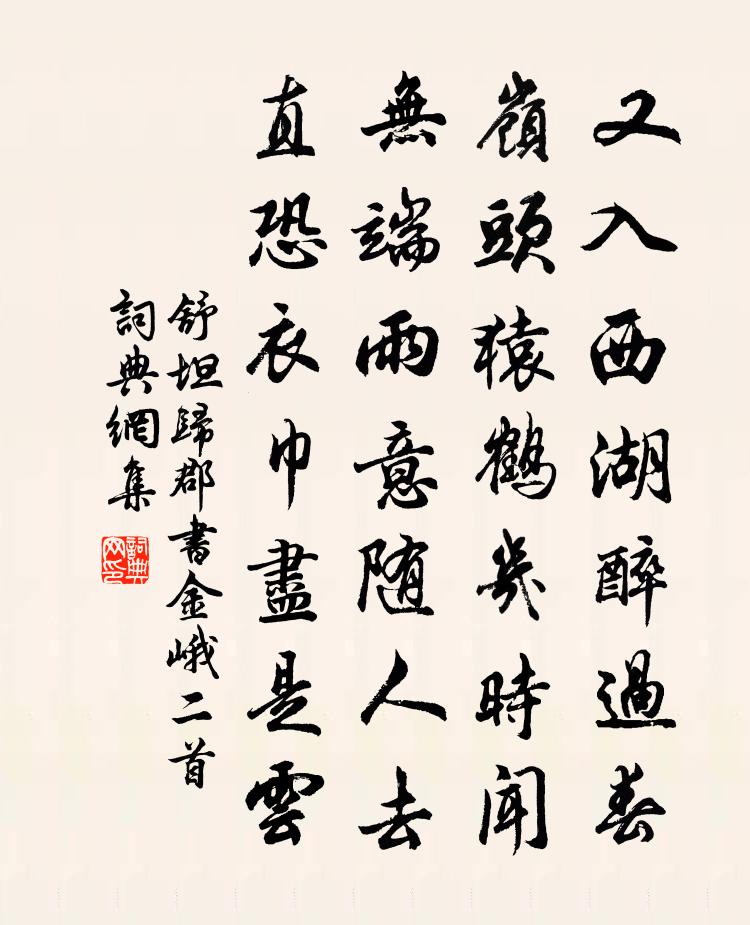 又入西湖醉過春
嶺頭猿鶴幾時聞
無端雨意随人去
直恐衣巾盡是雲
舒坦歸郡書金峨二首
詞典網集
詞典
网印